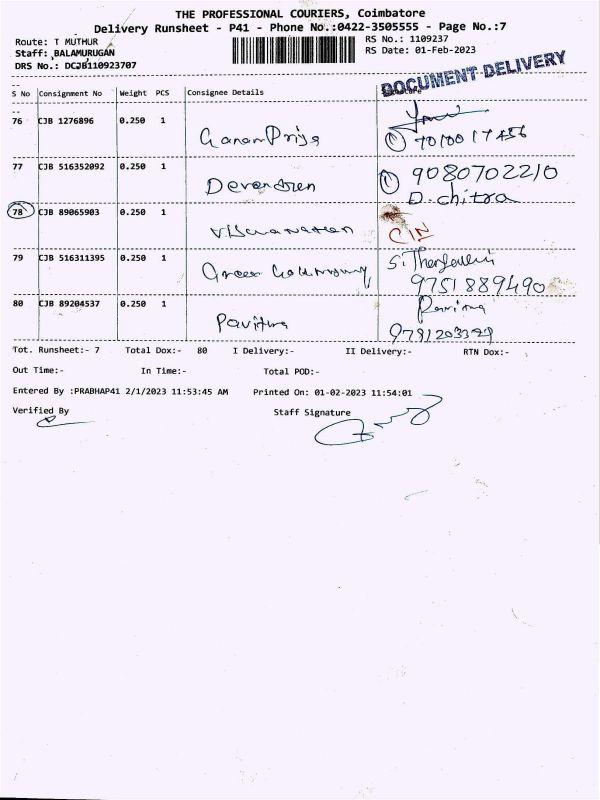 THE PROFESSIONAL COURIERS, Coimbatore
Delivery Runsheet - P41 - Phone No.:0422-3505555 - Page No.:7
Route: T MUTHUR RS No.: 1109237
Staff: BALAMURUGAN RS Date: 01-Feb-2023
DRS No.: DCJB110923707
DOCUMENT DELIVERY
S No Consignment No Weight PCS Consignee Details
76 CJB 1276896 0.250 1
77 CJB 516352092 0.250 1 Devendren 9080702210
D. chitra
78 CJB 89065903 0.250 1
79 CJB 516311395 0.250 1
9751889490
80 CJB 89204537 0.250 1 Pavithra
Tot. Runsheet:- 7 Total Dox:- 80 I Delivery:- II Delivery:- RTN Dox:-
Out Time:- In Time:- Total POD:-
Entered By :PRABHAP41 2/1/2023 11:53:45 AM Printed On: 01-02-2023 11:54:01
Verified By Staff Signature